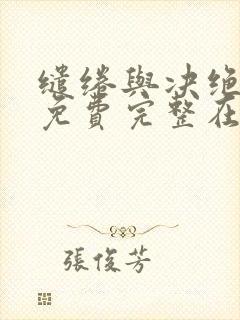 缱绻與决绝
免費完整在
張俊芳